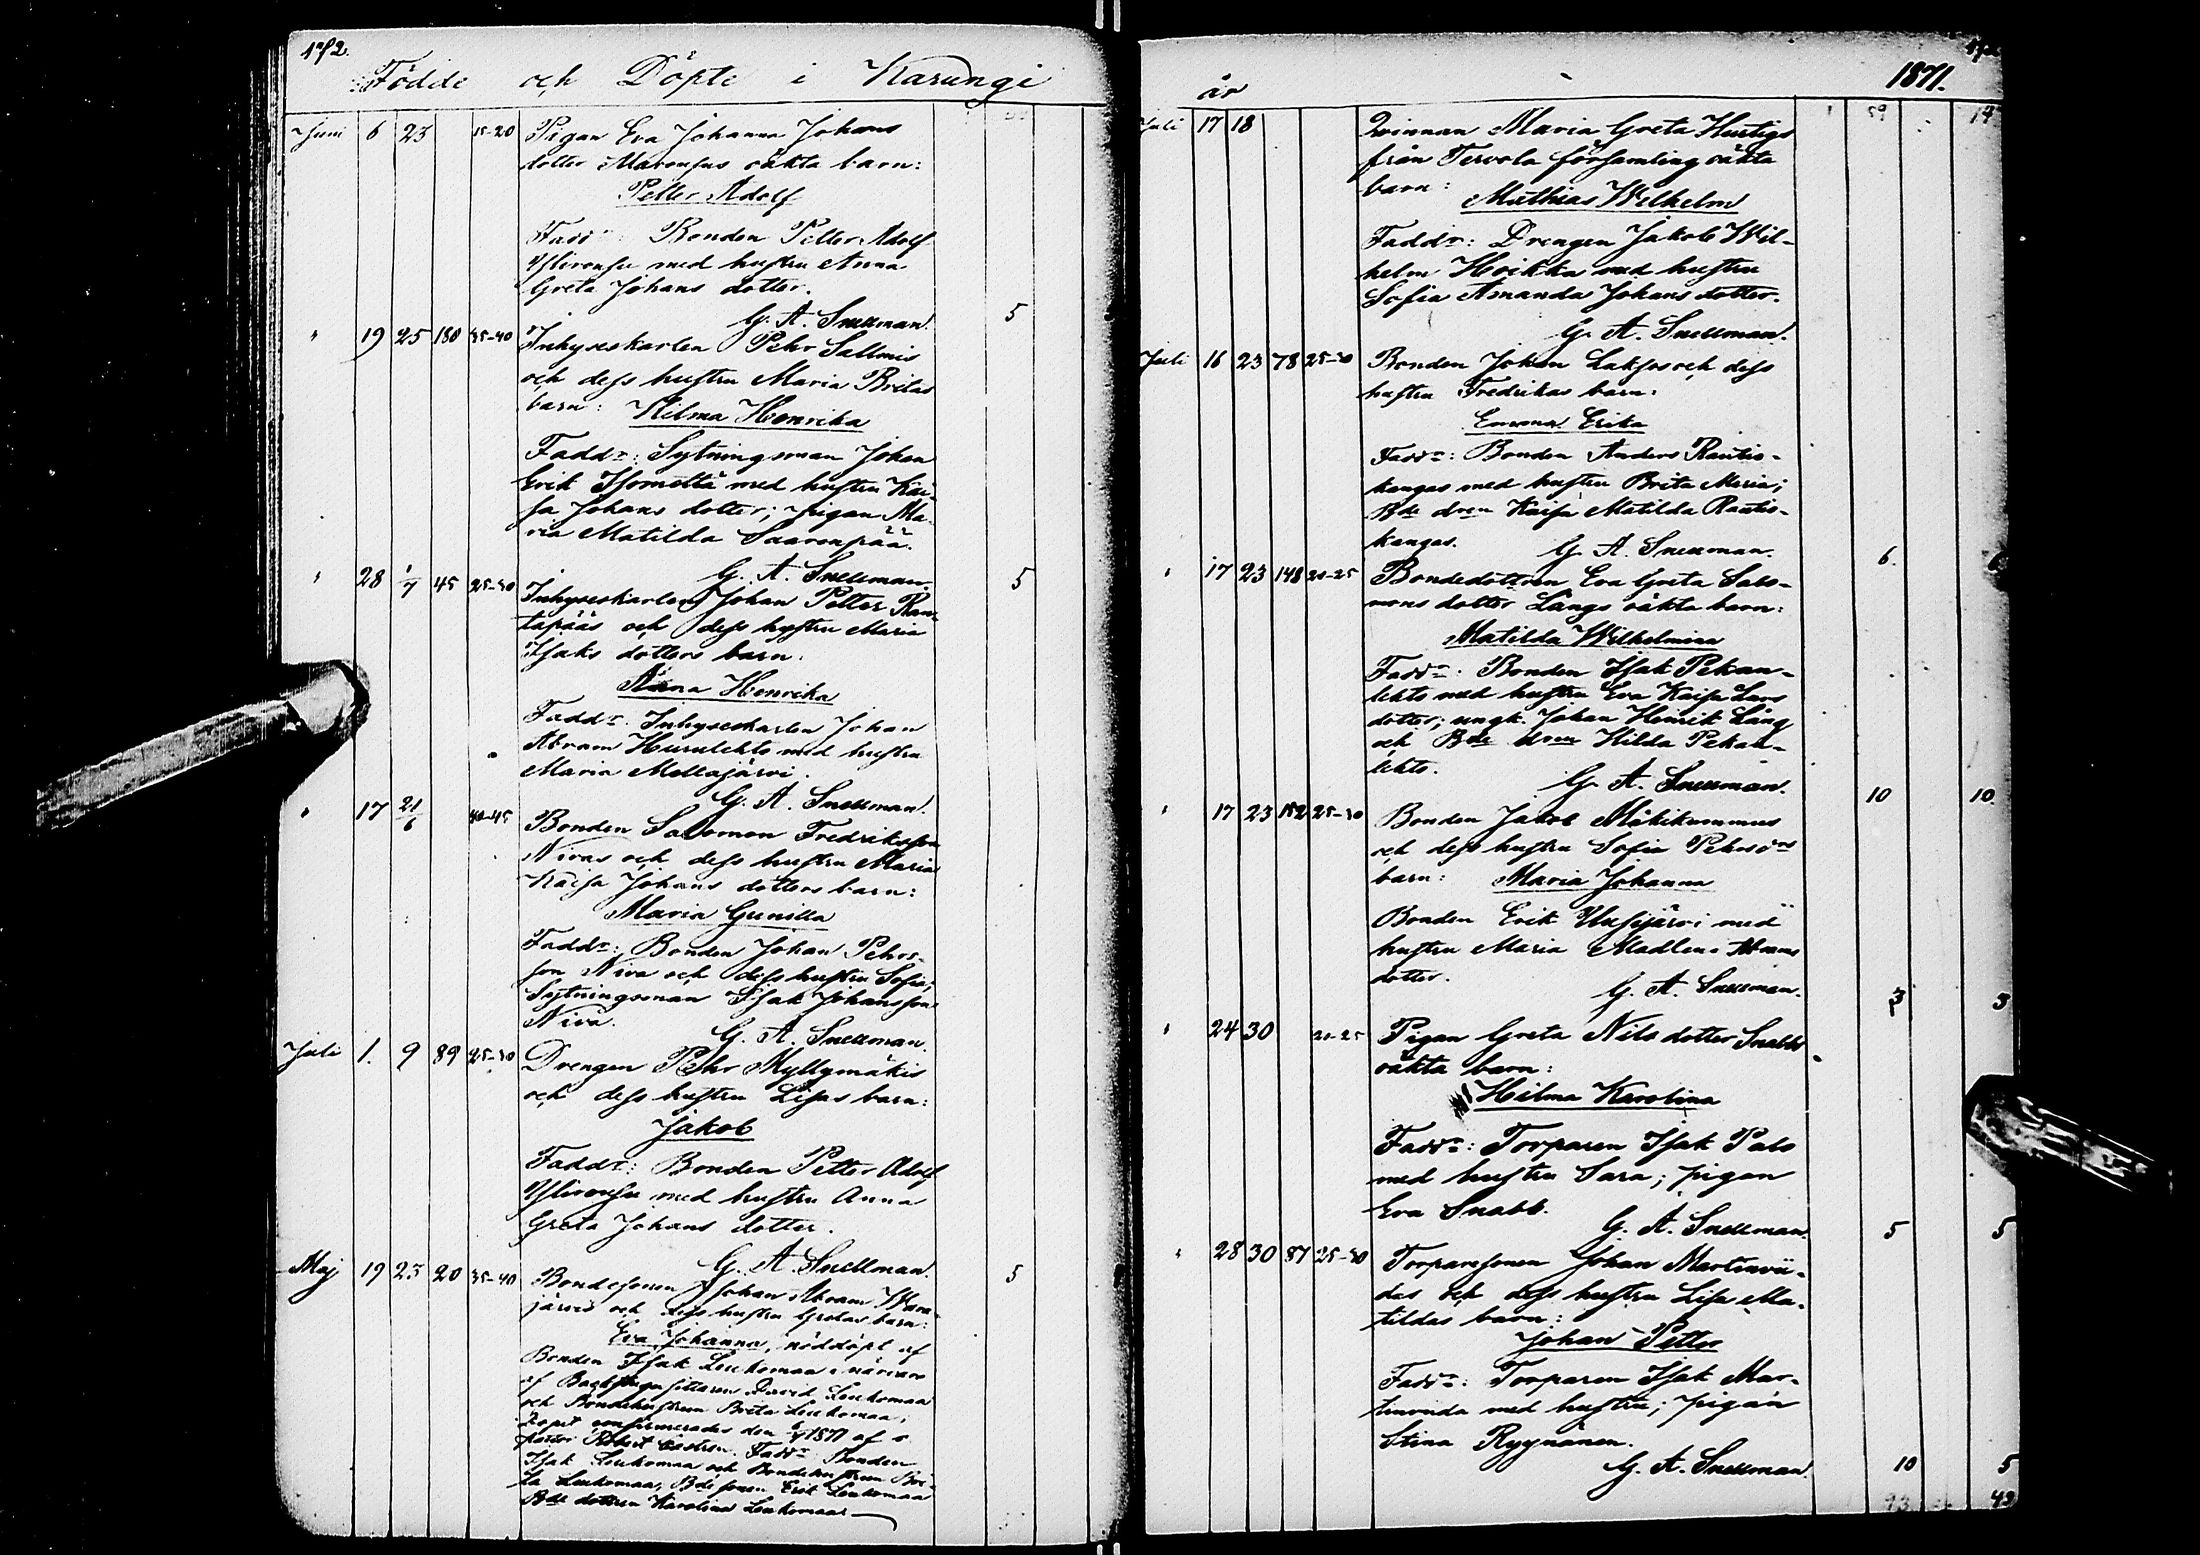 192.
Födde och Döpte i Karungi
Juni 6 23 15-20 Pigan Eva Johanna Johans
dotter Maronsus oäkta barn:
Petter Adolf
Faddr: Bonden Petter Adolf
Ylivonsu med hustru Anna
Greta Johans dotter.
G. A. Snellman. 5
" 19 25 180 35-40 Inhyseskarlen Pehr Sallmis
och dess hustru Maria Britas
barn: Hilma Henrika
Faddr: Sytningsman Johan
Erik Isometsä med hustru Kai-
sa Johans dotter; pigan Ma-
ria Matilda Saarenpää.
G. A. Snellman. 5
" 28 1/7 45 25-30 Inhyseskarlen Johan Petter Ran-
tapääs och dess hustru Maria
Isaks dotters barn:
Anna Henrika
Faddr: Inhyseskarlen Johan
Abram Hurulehto med hustru
Maria Mellajärvi.
G. A. Snellman.
" 17 21/6 40-45 Bonden Salomon Fredriksson
Nivas och dess hustru Maria
Kaisa Johans dotters barn:
Maria Gunilla
Faddr: Bonden Johan Pehrs-
son Niva och dess hustru Sofia;
Sytningsman Isak Johansson
Niva.
G. A. Snellman.
Juli 1. 9 89 25-30 Drengen Pehr Myllymäkis
och dess hustru Lisas barn:
Jakob
Faddr: Bonden Petter Adolf
Ylivonsu med hustru Anna
Greta Johans dotter.
G. A. Snellman. 5
Maj 19 23 20 35-40 Bondesonen Johan Abram Wara-
järvis och dess hustru Gretas barn:
Eva Johanna, nöddöpt af
Bonden Isak Leukomaa i närvaro
af Backstugusittaren David Leukomaa
och Bondehustrun Brita Leukomaa;
Dopet confirmerades den 6/7 1871 af v.
pastor Robert Castren. Faddr Bonden
Isak Leukomaa och Bondehustrun Bri-
ta Leukomaa, Bde sonen Erik Leukomaa
Bde dottren Karolina Leukomaa
år 1871.
Juli 17 18 Qvinnan Maria Greta Hurtigs
från Tervola församling oäkta
barn:
Mathias Wilhelm
Faddr: Drengen Jakob Wil-
helm Hoikka med hustru
Sofia Amanda Johans dotter.
G. A. Snellman.
Juli 16 23 78 25-30 Bonden Johan Laksos och dess
hustru Fredrikas barn:
Emma Erika
Faddr: Bonden Anders Rautio-
kangas med hustru Brita Maria;
Bde dren Kaisa Matilda Rautio-
kangas.
G. A. Snellman. 6. 6
" 17 23 148 20-25 Bondedottren Eva Greta Salo-
mons dotter Längs oäkta barn:
Matilda Wilhelmina
Faddr: Bonden Isak Pekan-
lehto med hustru Eva Kaisa Lars
dotter; ungk. Johan Henrik Läng
och Bde dren Hilda Pekan-
lehto.
G. A. Snellman. 10 10.
" 17 23 152 25-30 Bonden Jakob Mäkikummus
och dess hustru Sofia Pehrs drs
barn: Maria Johanna
Bonden Erik Uusijärvi med
hustru Maria Madlena Abrams
dotter.
G. A. Snellman. 3 3
" 24 30 20-25 Pigan Greta Nils dotter Snabbs
oäkta barn:
Hilma Karolina
Faddr: Torparen Isak Palo
med hustru Sara; pigan
Eva Snabb.
G. A. Snellman. 5 5
" 28 30 87 25-30 Torparesonen Johan Martinvii-
das och dess hustru Lisa Ma-
tildas barn:
Johan Petter
Faddr: Torparen Isak Mar-
tinviida med hustru; pigan
Stina Ryynänen.
G. A. Snellman. 10 5
93 43